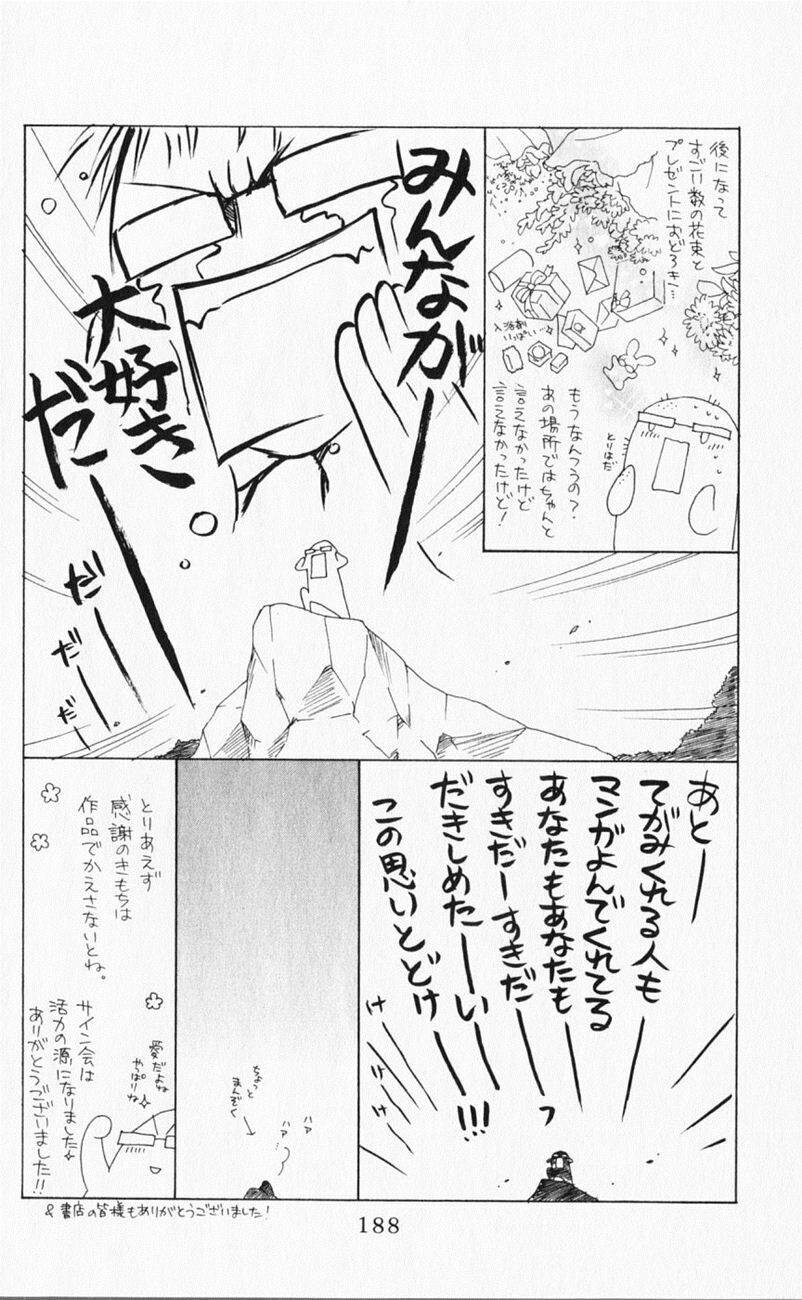 後になって
すごい数の花束と
プレゼントにおどろき…
入浴剤
いっぱい
とりはだ
もうなんつうの?
あの場所ではちゃんと
言えなかったけど
言えなかったけど!
みんながー
大好き
だー
だー
だー
だー
あとー
てがみくれる人も
マンガよんでくれてる
あなたもあなたも
すきだーすきだーっ
だきしめたーいー!!!
この思いとどけー
け
け
け
ハア
ハア
ちょっと
まんぞく
とりあえず
感謝のきもちは
作品でかえさないとね。
サイン会は
活力の源になりました
ありがとうございました!!
愛だよね
やっぱりね
&書店の皆様もありがとうございました!
188